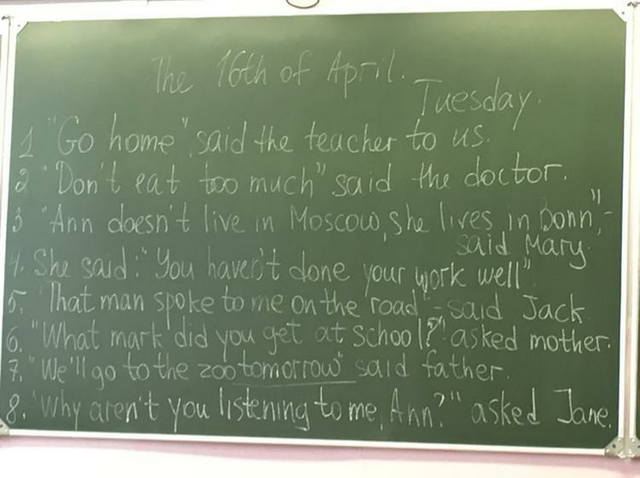 The 16th of April.
Tuesday.
1 "Go home", said the teacher to us.
2 "Don't eat too much" said the doctor.
3 "Ann doesn't live in Moscow, she lives in Bonn", -
said Mary.
4. She said: "You haven't done your work well"
5. "That man spoke to me on the road" - said Jack.
6. "What mark did you get at school?" asked mother.
7. "We'll go to the zoo tomorrow" said father.
8. "Why aren't you listening to me, Ann?" asked Jane.